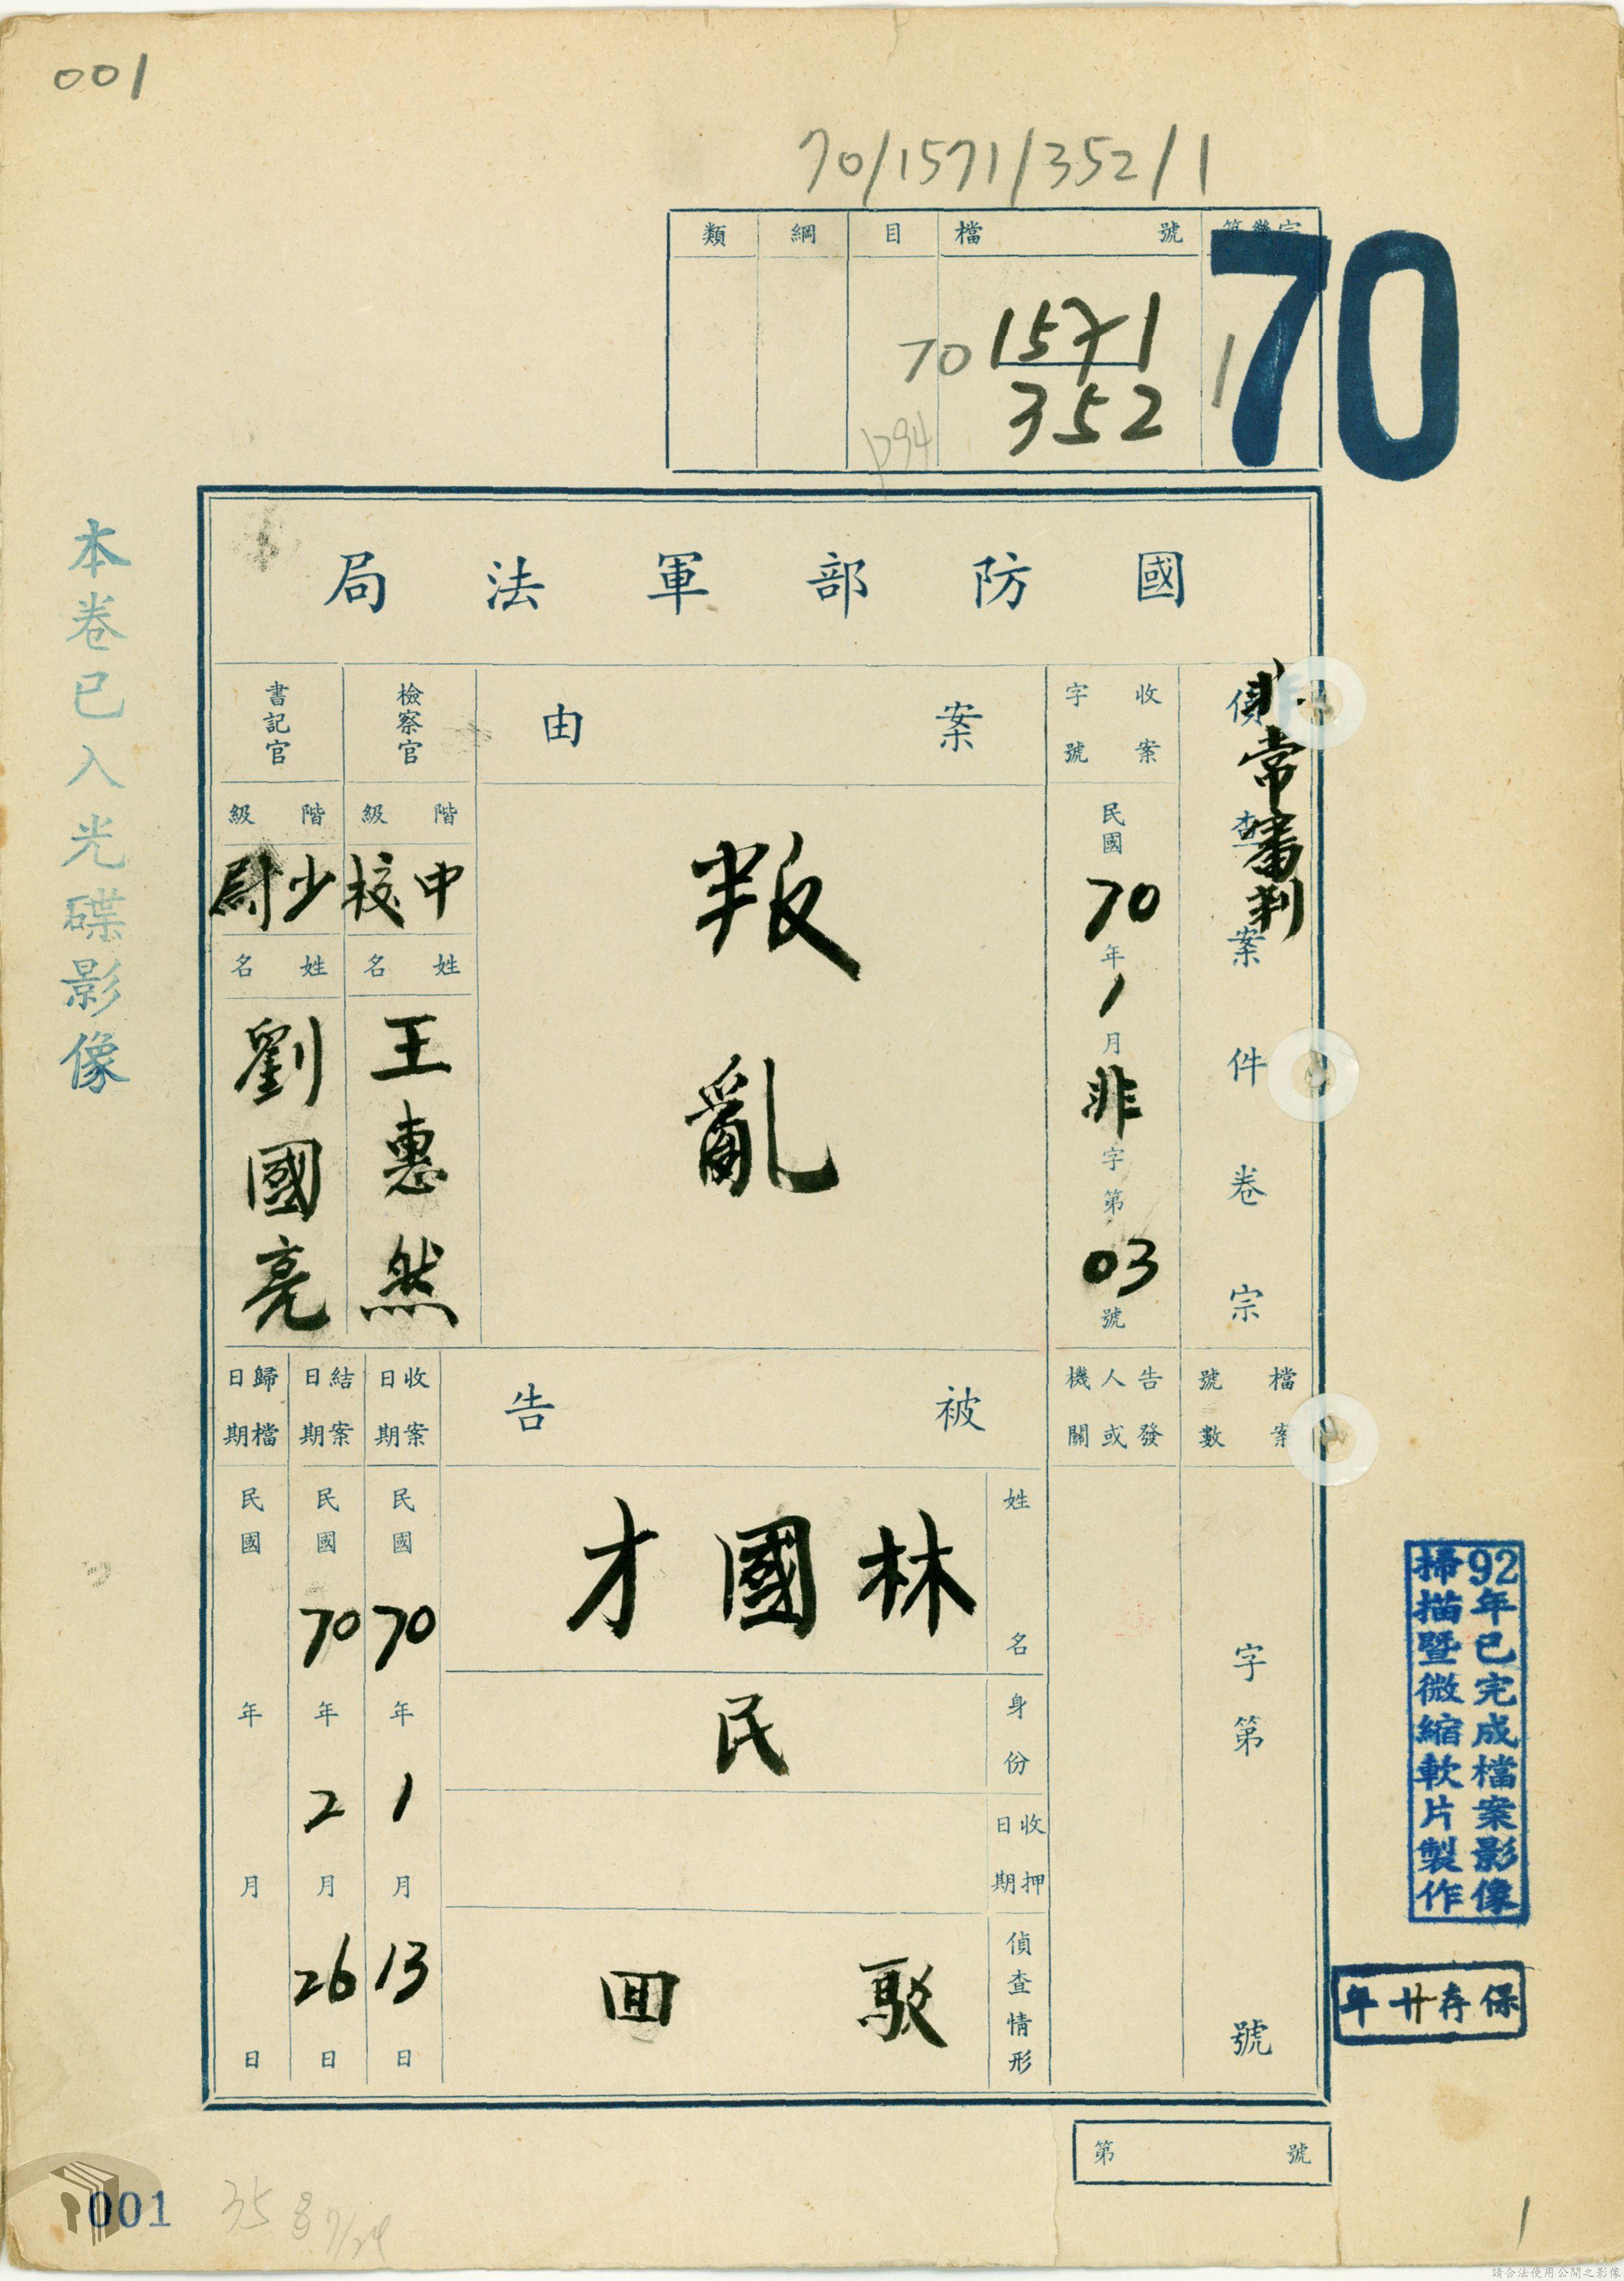 001
70/1571/352/1
類 綱 目 檔號
70
70 1571
352
1
國防部軍法局
偵查案件卷宗
非常審判
收案字號
民國70年1月非字第03號
案由
叛亂
檢察官
階級
中校
姓名
王惠然
書記官
階級
少尉
姓名
劉國亮
檔案號數
字第 號
告發人或機關
被告
姓名
林國才
身份
民
收押日期
偵查情形
駁回
收案日期
民國70年1月13日
結案日期
民國70年2月26日
歸檔日期
民國 年 月 日
第 號
本卷已入光碟影像
92年已完成檔案影像
掃描暨微縮軟片製作
保存廿年
001
1
請合法使用公開之影像